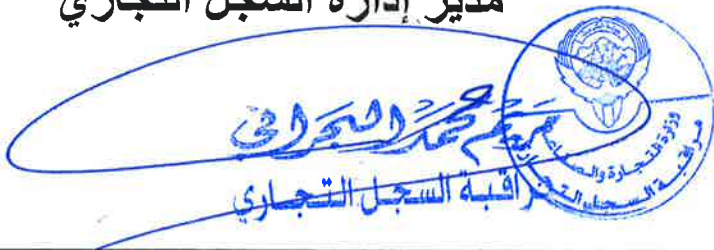 مدير إدارة السجل التجاري
مريم محمد البحراني
مراقبة السجل التجاري
وزارة التجارة والصناعة
مراقبة السجل التجاري